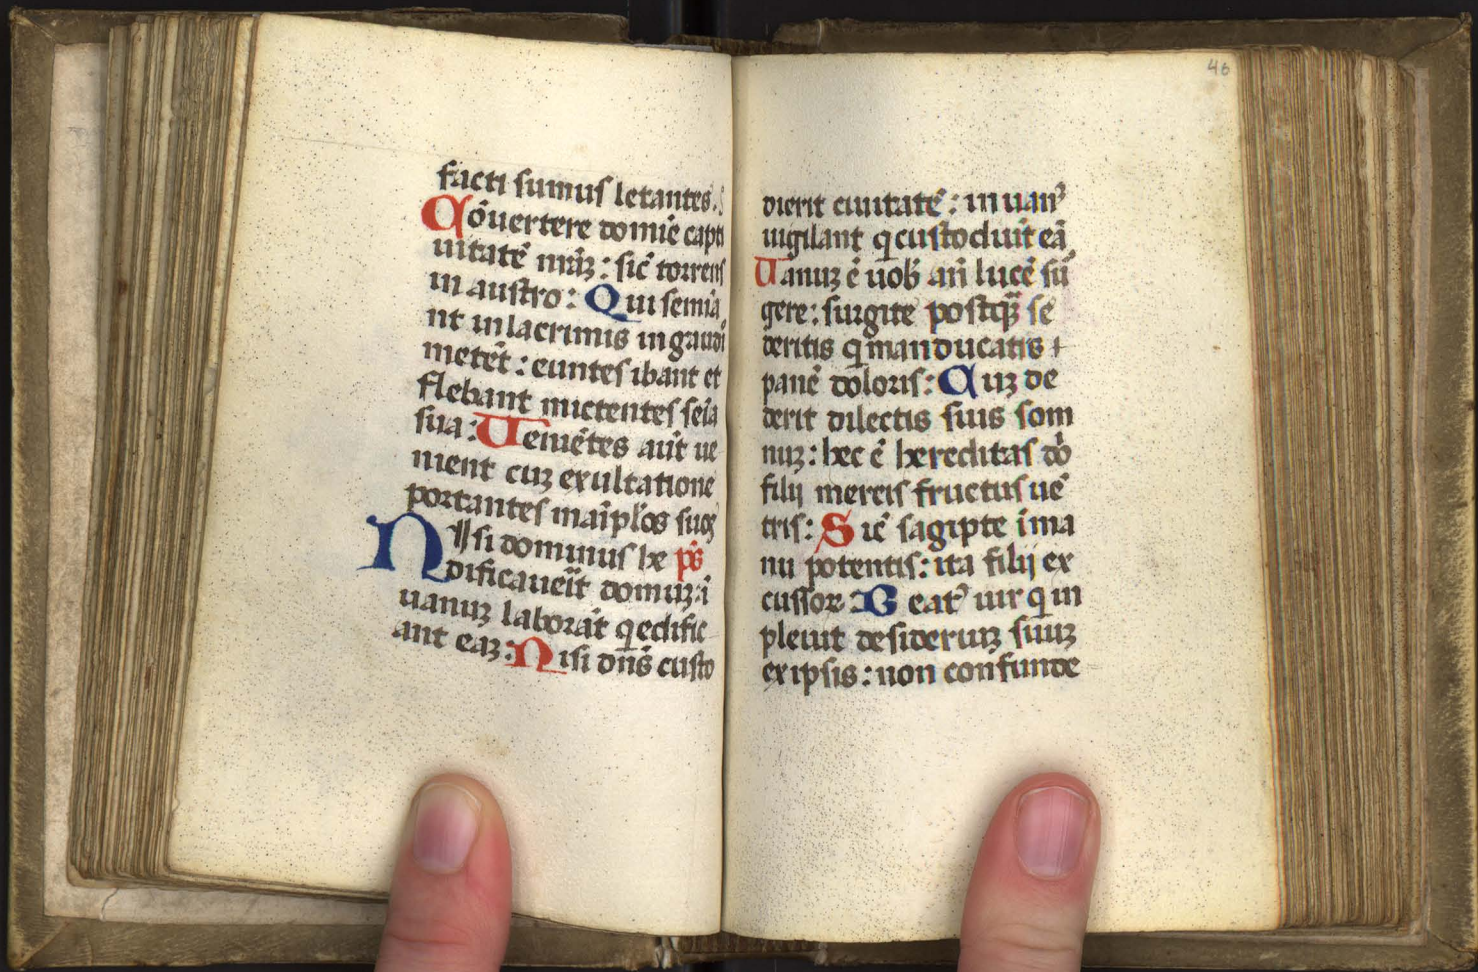 facti sumus letantes.
Cōuertere domiē capti
uitatē nrāꝫ : sic̄ torrens
in austro : Qui semīa
nt in lacrimis in gaudi
metēt : euntes ibant et
flebant mictentes seīa
sua : Ueniētes aut̄ ue
nient cuꝫ exultatione
portantes maīplos suoꝫ
Nisi dominus he p̄s
dificaueit̄ domuꝫ : ī
uanuꝫ laborāt q̄ edific
ant eaꝫ : Nisi dn̄s custo
46
dierit ciuitatē : in uanꝰ
uigilant q custodiuit eā
Uanuꝫ ē uob̄ an̄ lucē sū
gere : surgite postqꝫ̄ se
deritis q manducatis
panē doloris : Cuꝫ de
derit dilectis suis som
nuꝫ : hec ē hereditas dō
filij merces fructus uē
tris : Sic̄ sagipte ī ma
nu potentis : ita filij ex
cussoꝝ Beatꝰ uir q in
pleuit desideruꝫ suuꝫ
ex ipsis : non confunde